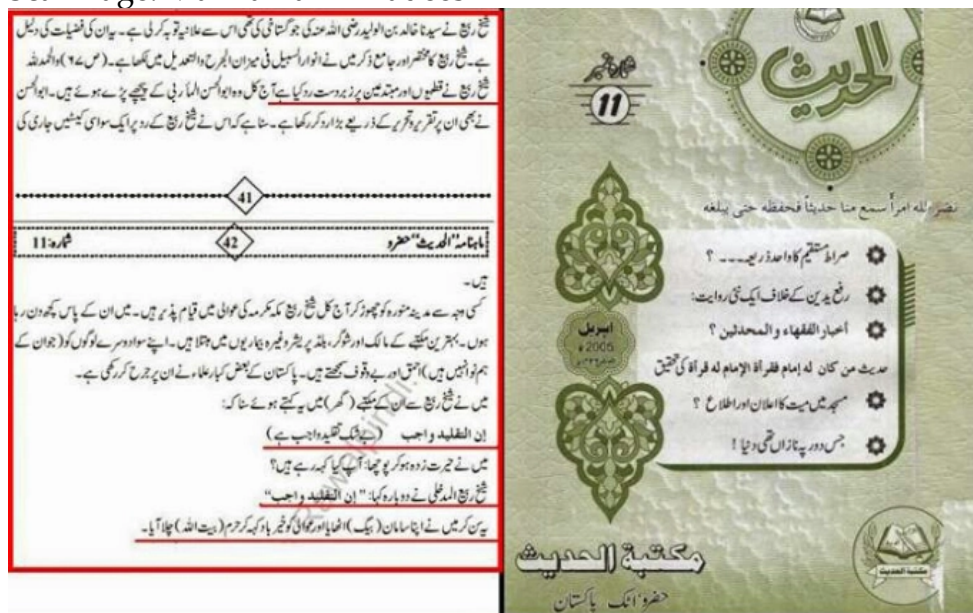 شیخ ربیع نے سیدنا خالد بن الولید رضی اللہ عنہ کی جو گستاخی کی تھی اس سے علانیہ توبہ کر لی ہے۔ یہ ان کی فضیلت کی دلیل
ہے۔ شیخ ربیع کا مختصر اور جامع ذکر میں نے انوار السبیل فی میزان الجرح والتعدیل میں لکھا ہے۔ (ص ۶۷) والحمدللہ
شیخ ربیع نے قطبیوں اور مبتدعین پر زبردست رد کیا ہے آج کل وہ ابوالحسن المأربی کے پیچھے پڑے ہوئے ہیں۔ ابوالحسن
نے بھی ان پر تقریر و تحریر کے ذریعے بڑا رد کر رکھا ہے۔ سنا ہے کہ اس نے شیخ ربیع کے رد پر ایک سو اسی کیسٹیں جاری کی
41
ماہنامہ "الحدیث" حضرو 42 شمارہ: 11
ہیں۔
کسی وجہ سے مدینہ منورہ کو چھوڑ کر آج کل شیخ ربیع مکہ مکرمہ کی عوالی میں قیام پذیر ہیں۔ میں ان کے پاس کچھ دن رہا
ہوں۔ بہترین مکتبے کے مالک اور شوگر، بلڈ پریشر وغیرہ بیماریوں میں مبتلا ہیں۔ اپنے سوا دوسرے لوگوں کو (جو ان کے
ہم نوا نہیں ہیں) احمق اور بے وقوف سمجھتے ہیں۔ پاکستان کے بعض کبار علماء نے ان پر جرح کر رکھی ہے۔
میں نے شیخ ربیع سے ان کے مکتبے (گھر) میں یہ کہتے ہوئے سنا کہ:
إن التقلید واجب (بے شک تقلید واجب ہے)
میں نے حیرت زدہ ہو کر پوچھا: آپ کیا کہہ رہے ہیں؟
شیخ ربیع المدخلی نے دوبارہ کہا: "إن التقلید واجب"
یہ سن کر میں نے اپنا سامان (بیگ) اٹھایا اور عوالی کو خیر باد کہہ کر حرم (بیت اللہ) چلا آیا۔
الحدیث
شمارہ نمبر
11
نضر الله امرأً سمع منا حديثاً فحفظه حتى يبلغه
صراط مستقیم کا واحد ذریعہ۔۔۔۔ ؟
رفع یدین کے خلاف ایک نئی روایت:
أخبار الفقهاء والمحدثین ؟
حدیث من كان له إمام فقرأة الإمام له قرأة کی تحقیق
مسجد میں میت کا اعلان اور اطلاع ؟
جس دور پہ نازاں تھی دنیا !
اپریل
2005ء
مكتبة الحديث
حضرو، اٹک پاکستان
مكتبة الحديث